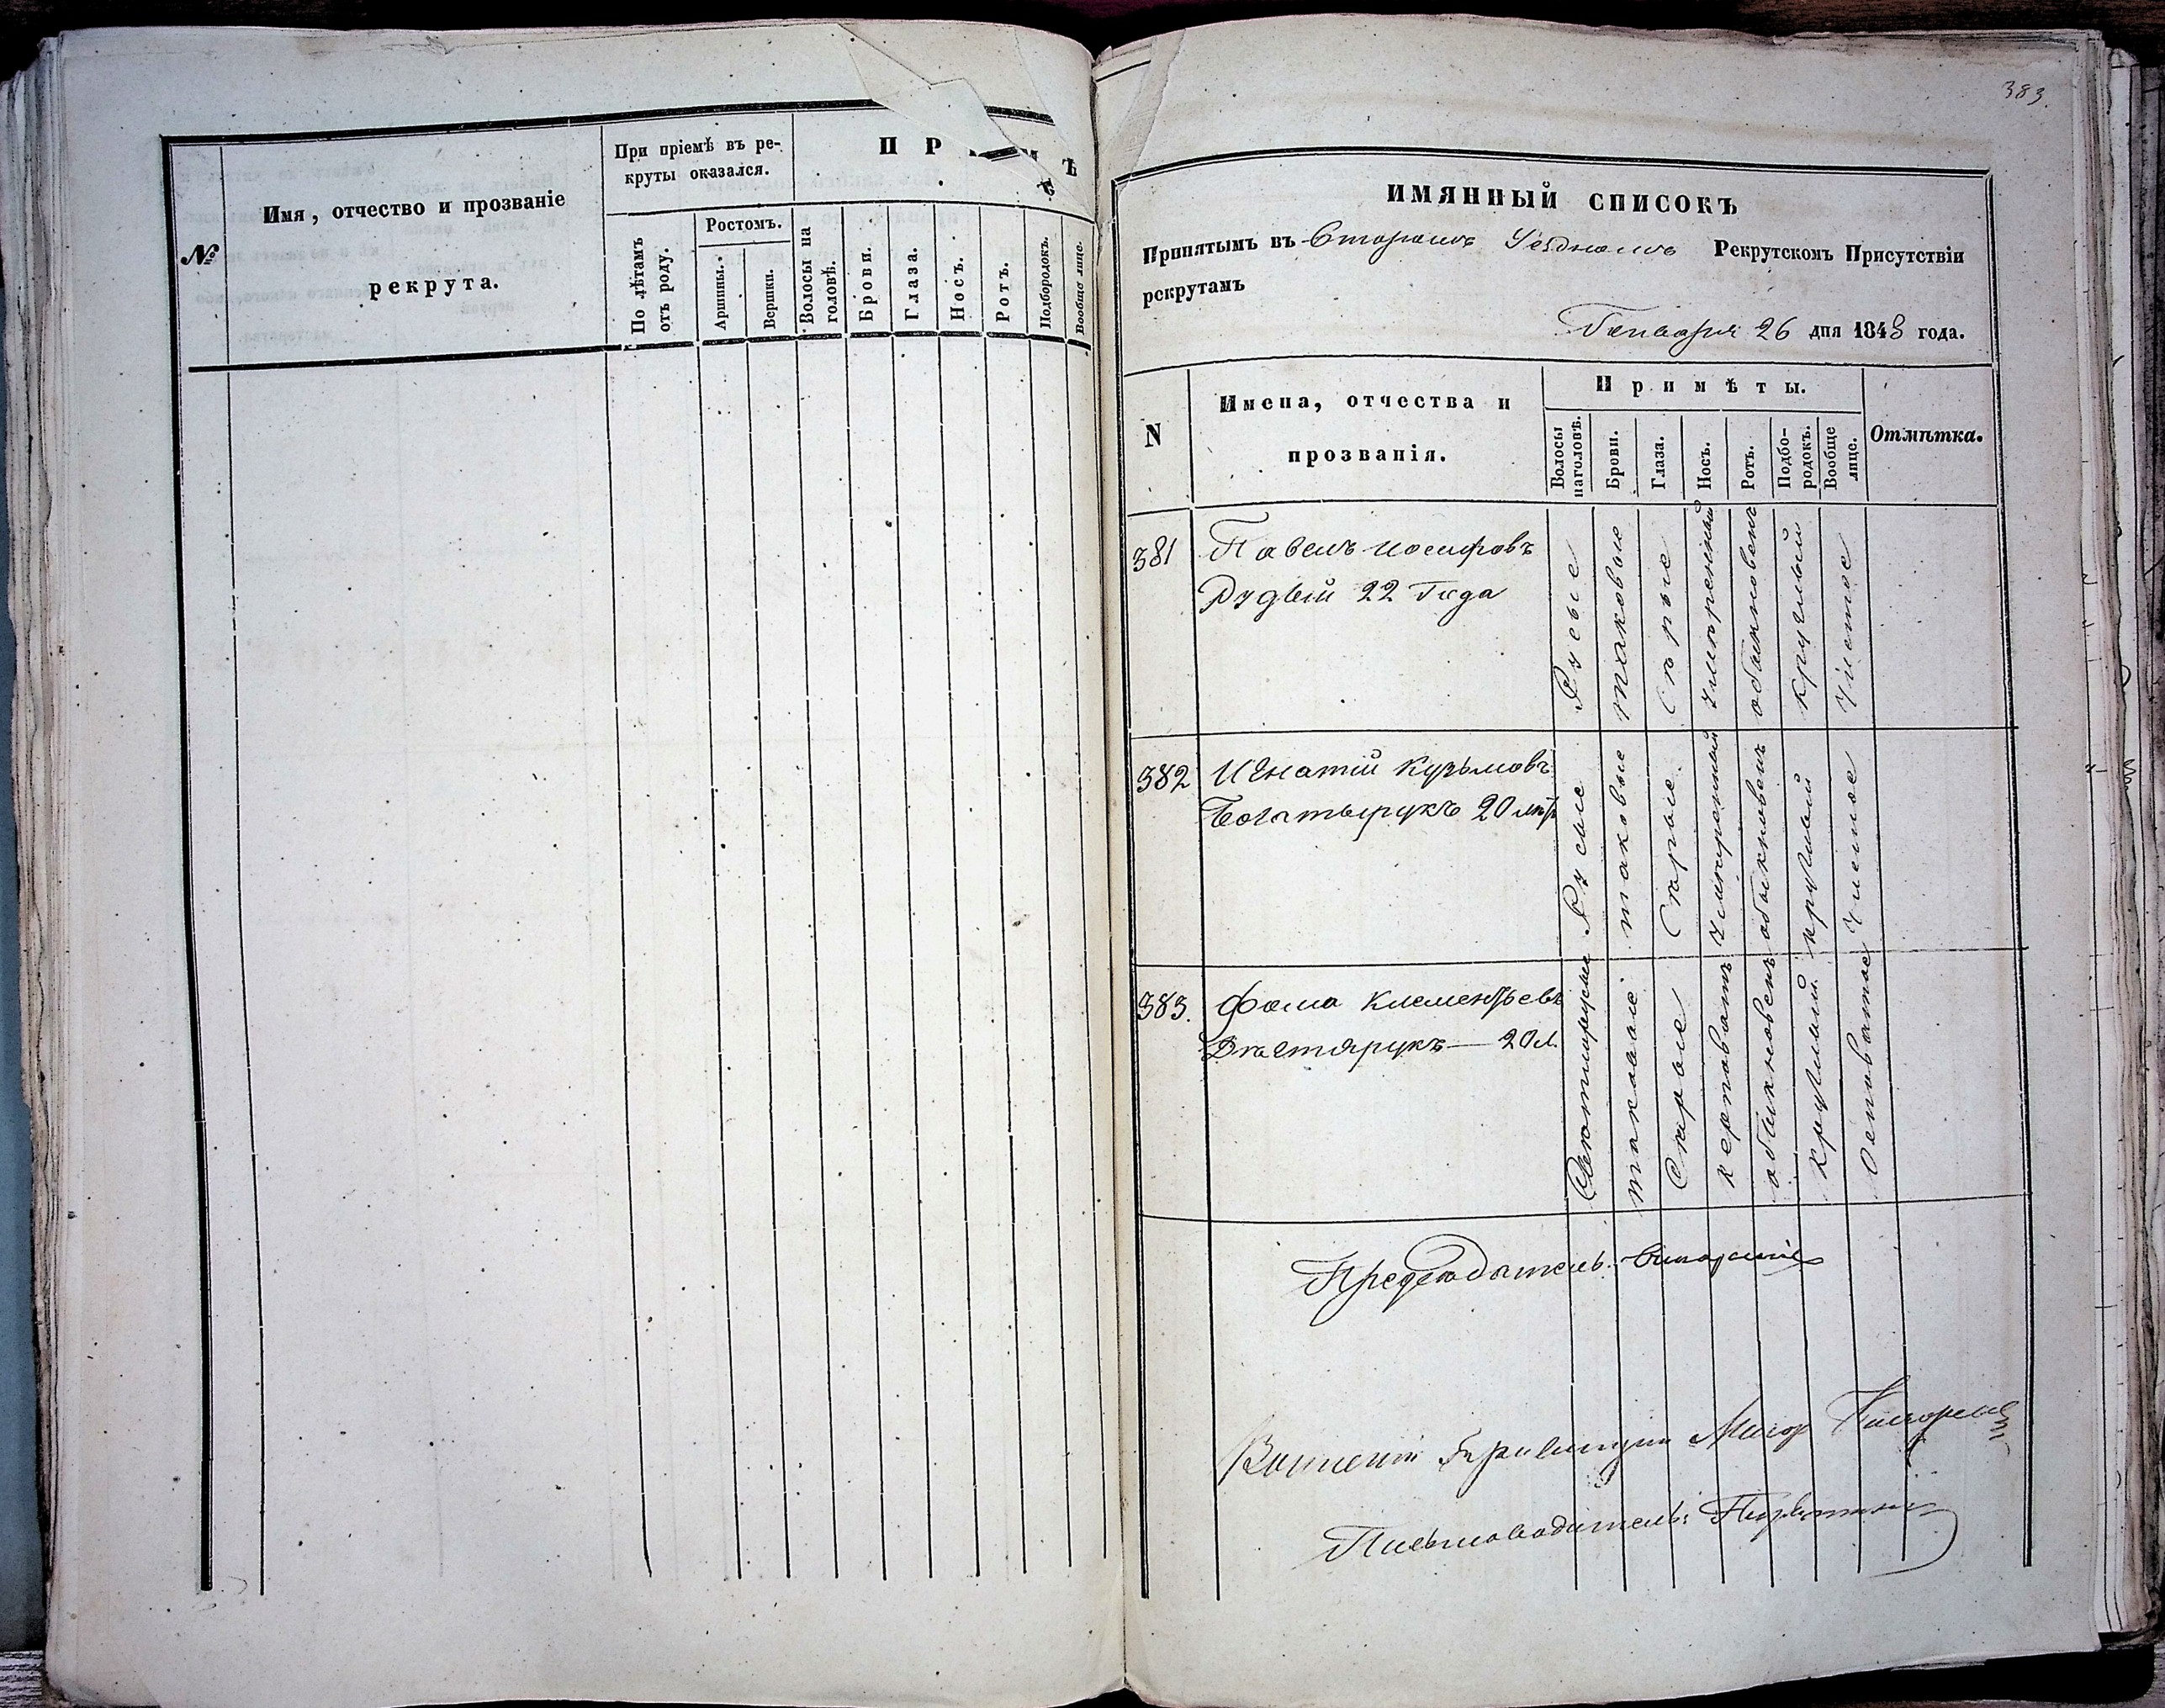 №
Имя, отчество и прозваніе
рекрута.
При пріемѣ въ ре-
круты оказался.
По лѣтамъ
отъ роду.
Ростомъ.
Аршины.
Вершки.
П Р
Волосы на
головѣ.
Брови.
Глаза.
Носъ.
Ротъ.
Подбородокъ.
Вообще лице.
383.
ИМЯННЫЙ СПИСОКЪ
Принятымъ въ Второмъ Уѣздномъ Рекрутскомъ Присутствіи
рекрутамъ
Генваря 26 дня 1843 года.
N
Имена, отчества и
прозванія.
Примѣты.
Волосы
наголовѣ.
Брови.
Глаза.
Носъ.
Ротъ.
Подбо-
родокъ.
Вообще
лице.
Отмѣтка.
381
Павелъ Иосифовъ
Рудый 22 Года
Русые
таковые
Сѣрые
умѣренный
обыкновенъ
круглый
Чистое
382
Игнатій Кузьмовъ
Богатырукъ 20 лѣтъ
Русые
таковые
Сѣрые
Умѣренный
обыкновенъ
круглый
Чистое
383.
Фома Клементьевъ
20 л.
Свѣтлорусые
таковые
Сѣрые
обыкновенъ
круглый
Осповатое
Предсѣдатель
Военный Маіор
Письмоводитель: